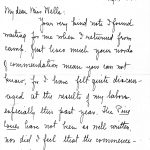 My dear Miss Wells:
Your very kind note I found
waiting for me when I returned from
camp. Just how much your words
of commendation mean you can not
know, for I have felt quite discour-
aged at the results of my labors,
especially this past year. The Pine
Cones have not been so well written
nor did I feel that the commence-